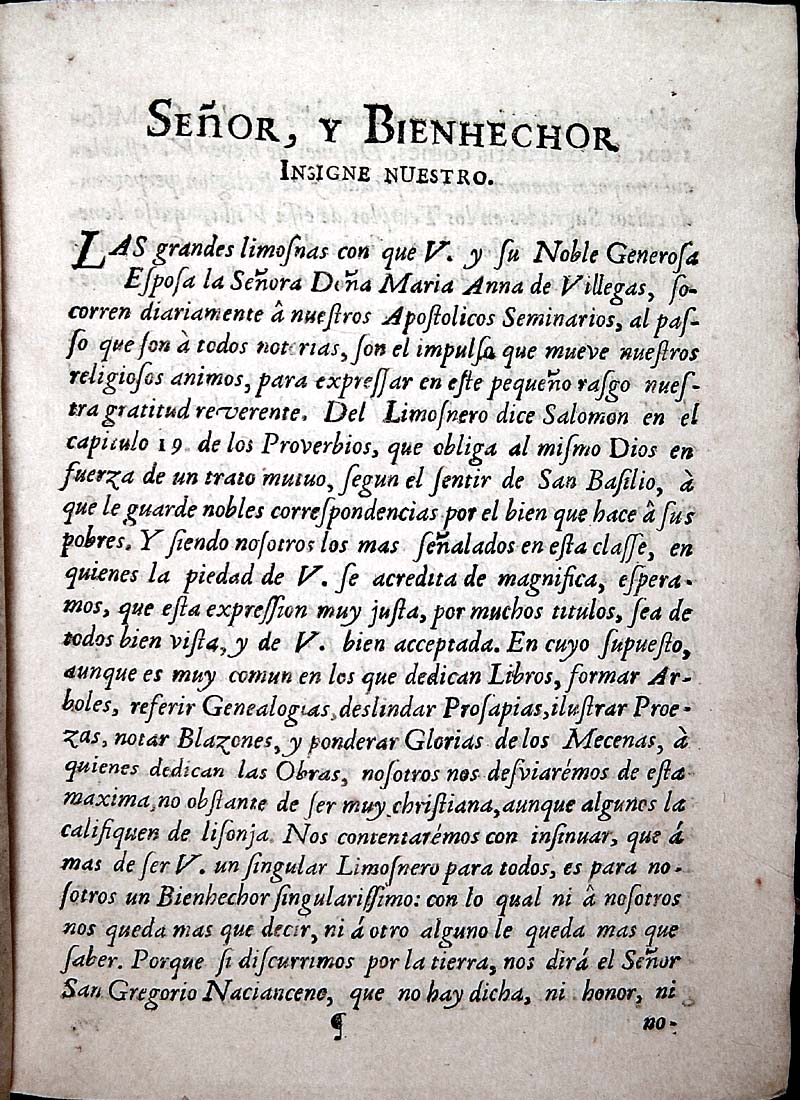 SEÑOR, Y BIENHECHOR
INSIGNE NUESTRO.
LAS grandes limoſnas con que V. y ſu Noble Generoſa
Eſpoſa la Señora Doña Maria Anna de Villegas, ſo-
corren diariamente â nueſtros Apoſtolicos Seminarios, al paſ-
ſo que ſon à todos notorias, ſon el impulſo que mueve nueſtros
religioſos animos, para expreſſar en eſte pequeño raſgo nueſ-
tra gratitud reverente. Del Limoſnero dice Salomon en el
capitulo 19. de los Proverbios, que obliga al miſmo Dios en
fuerza de un trato mutuo, ſegun el ſentir de San Baſilio, à
que le guarde nobles correſpondencias por el bien que hace â ſus
pobres. Y ſiendo noſotros los mas ſeñalados en eſta claſſe, en
quienes la piedad de V. ſe acredita de magnifica, eſpera-
mos, que eſta expreſſion muy juſta, por muchos titulos, ſea de
todos bien viſta, y de V. bien acceptada. En cuyo ſupueſto,
aunque es muy comun en los que dedican Libros, formar Ar-
boles, referir Genealogias, deslindar Proſapias, iluſtrar Proe-
zas, notar Blazones, y ponderar Glorias de los Mecenas, à
quienes dedican las Obras, noſotros nos deſviarémos de eſta
maxima, no obſtante de ſer muy chriſtiana, aunque algunos la
califiquen de liſonja. Nos contentarémos con inſinuar, que á
mas de ſer V. un ſingular Limoſnero para todos, es para no-
ſotros un Bienhechor ſingulariſſimo: con lo qual ni â noſotros
nos queda mas que decir, ni á otro alguno le queda mas que
ſaber. Porque ſi diſcurrimos por la tierra, nos dirá el Señor
San Gregorio Nacianceno, que no hay dicha, ni honor, ni
¶ no-